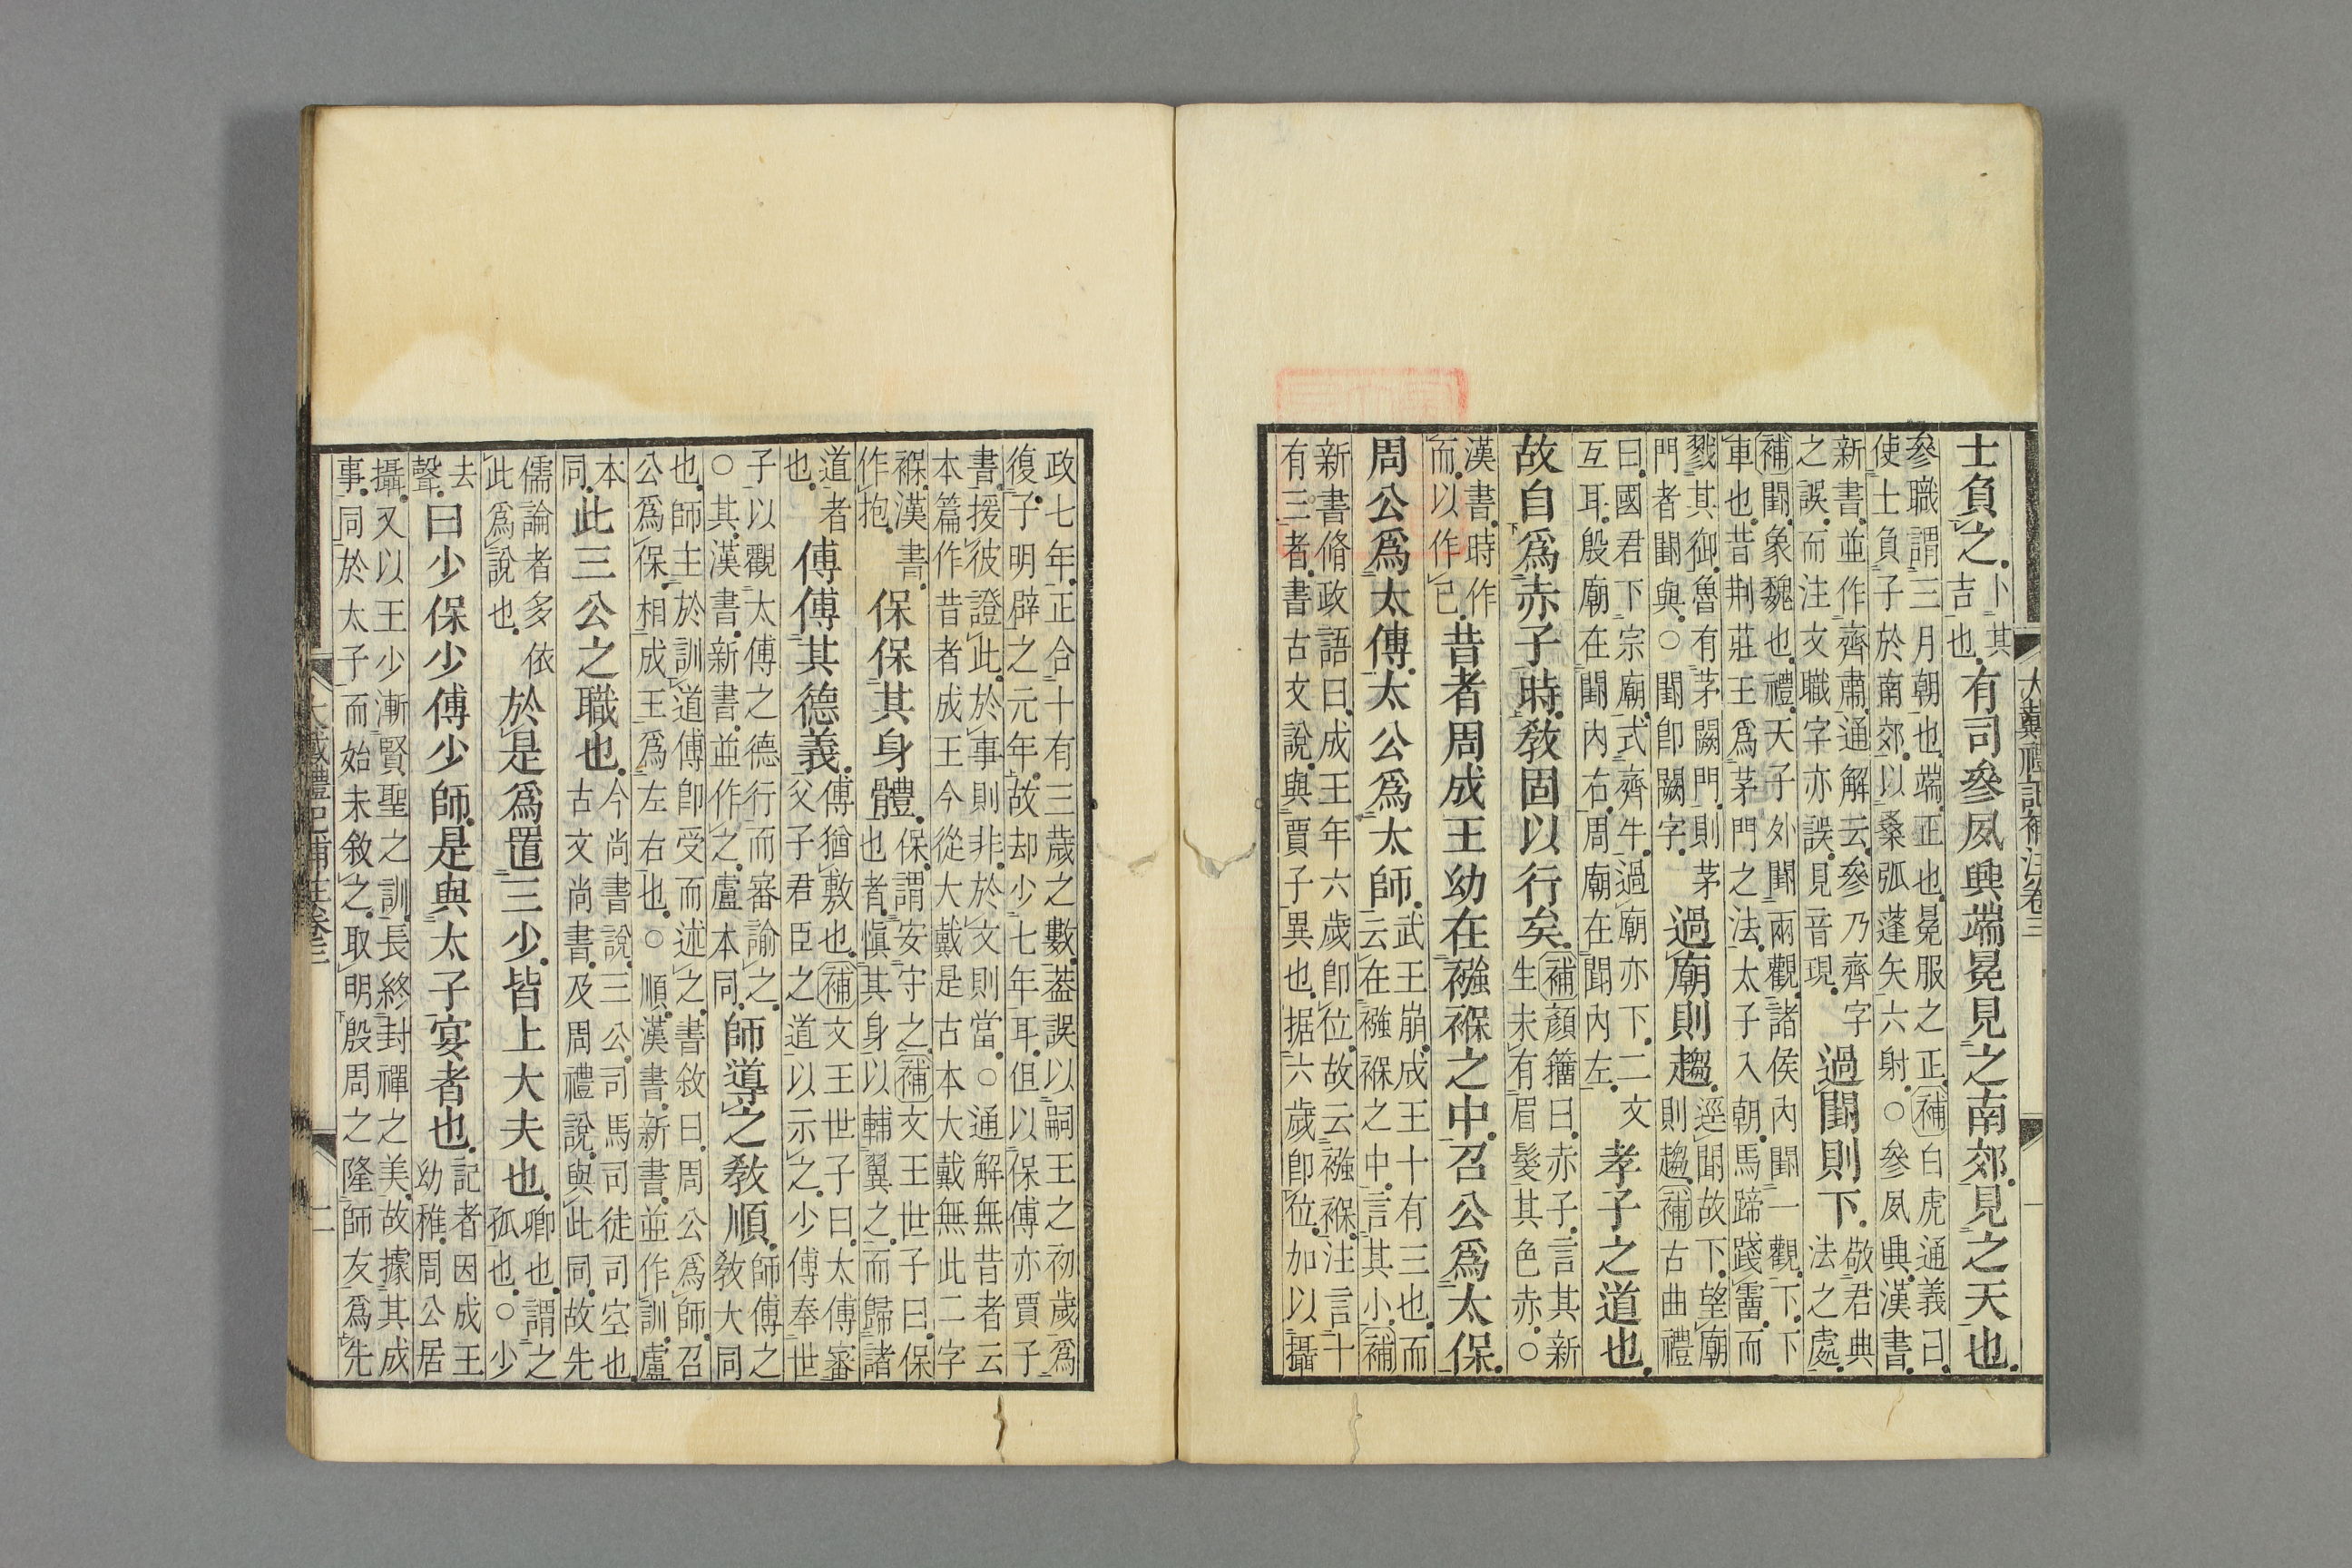 大戴禮記補注卷三
一
士負之卜其
吉也有司參夙興端冕見之南郊見之天也
參職謂三月朝也端正也冕服之正補白虎通義曰
使士負子於南郊以桑弧蓬矢六射○參夙興漢書
新書並作齊肅通解云參乃齊字
之誤而注文職字亦誤見音現過則下敬君典
法之處
補象魏也禮天子外兩觀諸侯內一觀下下
車也昔荆莊王爲茅門之法太子入朝馬蹄踐霤而
戮其御魯有茅闕門則茅
門者與○卽闕字過廟則趨逕故下望廟
則趨補古曲禮
曰國君下宗廟式齊牛過廟亦下二文
互耳殷廟在內右周廟在內左孝子之道也
故自爲赤子時敎固以行矣補顔籀曰赤子言其新
生未有眉髮其色赤○
漢書時作
而以作已昔者周成王幼在襁褓之中召公爲太保
周公爲太傅太公爲太師武王崩成王十有三也而
云在襁褓之中言其小補
新書脩政語曰成王年六歲卽位故云襁褓注言十
有三者書古文說與賈子異也据六歲卽位加以攝
政七年正合十有三歲之數葢誤以嗣王之初歲爲
復子明辟之元年故却少七年耳但以保傅亦賈子
書援彼證此於事則非於文則當○通解無昔者云
本篇作昔者成王今從大戴是古本大戴無此二字
褓漢書
作抱保保其身體保謂安守之補文王世子曰保
也者愼其身以輔翼之而歸諸
道者
也傅傅其德義傅猶敷也補文王世子曰太傅審
父子君臣之道以示之少傅奉世
子以觀太傅之德行而審諭之
○其漢書新書並作之盧本同師導之敎順師傅之
敎大同
也師主於訓道傅卽受而述之書敘曰周公爲師召
公爲保相成王爲左右也○順漢書新書並作訓盧
本
同此三公之職也今尚書說三公司馬司徒司空也
古文尚書及周禮說與此同故先
儒論者多依
此爲說也於是爲置三少皆上大夫也卿也謂之
孤也○少
去
聲曰少保少傅少師是與太子宴者也記者因成王
幼稚周公居
攝又以王少漸賢聖之訓長終封禪之美故據其成
事同於太子而始未敘之取明殷周之隆師友爲先
大戴禮記補注卷三
二